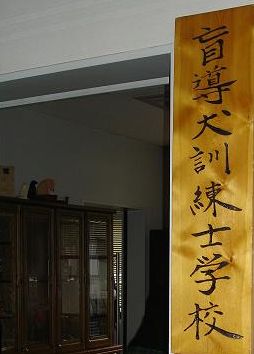 盲導犬訓練士学校